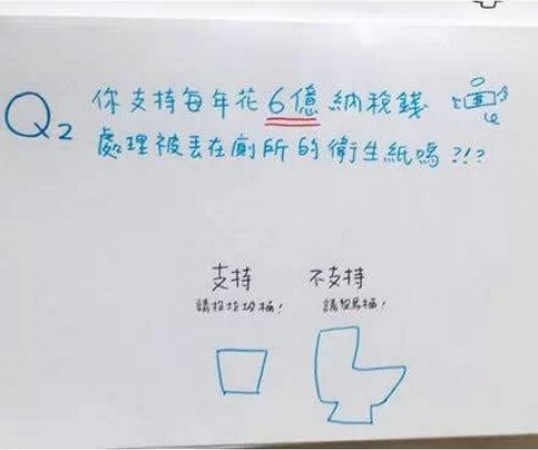 Q2
你支持每年花6億納稅錢
處理被丟在廁所的衛生紙嗎?!?
支持 不支持
請投垃圾桶! 請投馬桶!